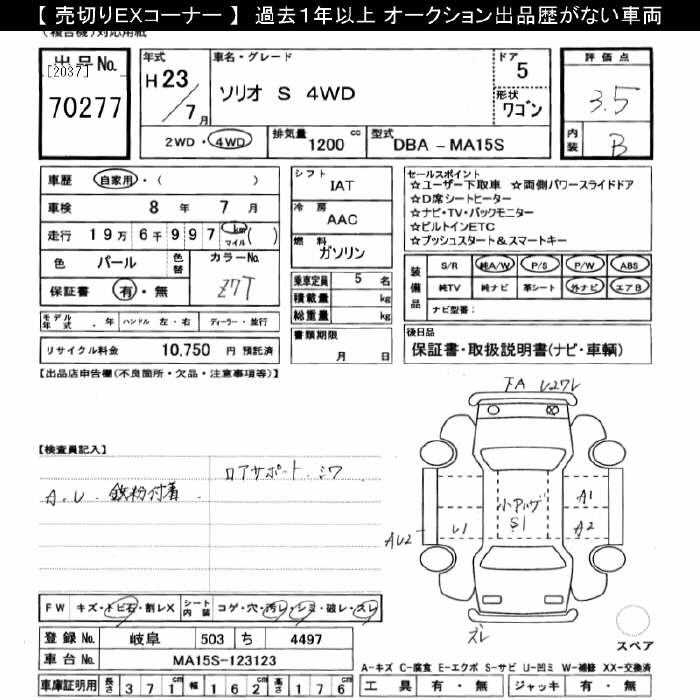 【 売切りEXコーナー 】 過去1年以上 オークション出品歴がない車両
(複合機)対応用紙
出品No.
[2037]
70277
年式
H 23 / 7 月
車名・グレード
ソリオ S 4WD
ドア
5
形状
ワゴン
評価点
3.5
内装
B
2WD・4WD
排気量 1200 cc
型式 DBA - MA15S
車歴 自家用・( )
車検 8 年 7 月
走行 19万 6千 997 km マイル ( )
色 パール 色替 カラーNo.
Z7T
保証書 有・無
モデル年式 . 年 ハンドル 左・右 ディーラー・並行
リサイクル料金 10,750 円 預託済
シフト
IAT
冷房
AAC
燃料
ガソリン
乗車定員 5 名
積載量 kg
総重量 kg
書類期限
月 日
セールスポイント
☆ユーザー下取車 ☆両側パワースライドドア
☆D席シートヒーター
☆ナビ・TV・バックモニター
☆ビルトインETC
☆プッシュスタート&スマートキー
装備品
S/R 純A/W P/S P/W ABS
純TV 純ナビ 革シート 外ナビ エアB
ナビ型番:
後日品
保証書・取扱説明書(ナビ・車輌)
【出品店申告欄(不良箇所・欠品・注意事項等)】
【検査員記入】
A.U. 鉄粉付着
ロアサポート シワ
FA
小アルゲ
S1
A1
A2
AU2
U1
ズレ
スペア
FW キズ・トビ石・割レX シート内装 コゲ・穴・汚レ・シミ・破レ・スレ
登録No. 岐阜 503 ち 4497
車台No. MA15S-123123
車庫証明用 長さ 371 cm 幅 162 cm 高さ 176 cm
A-キズ C-腐食 E-エクボ S-サビ U-凹ミ W-補修 XX-交換済
工具 有・無 ジャッキ 有・無